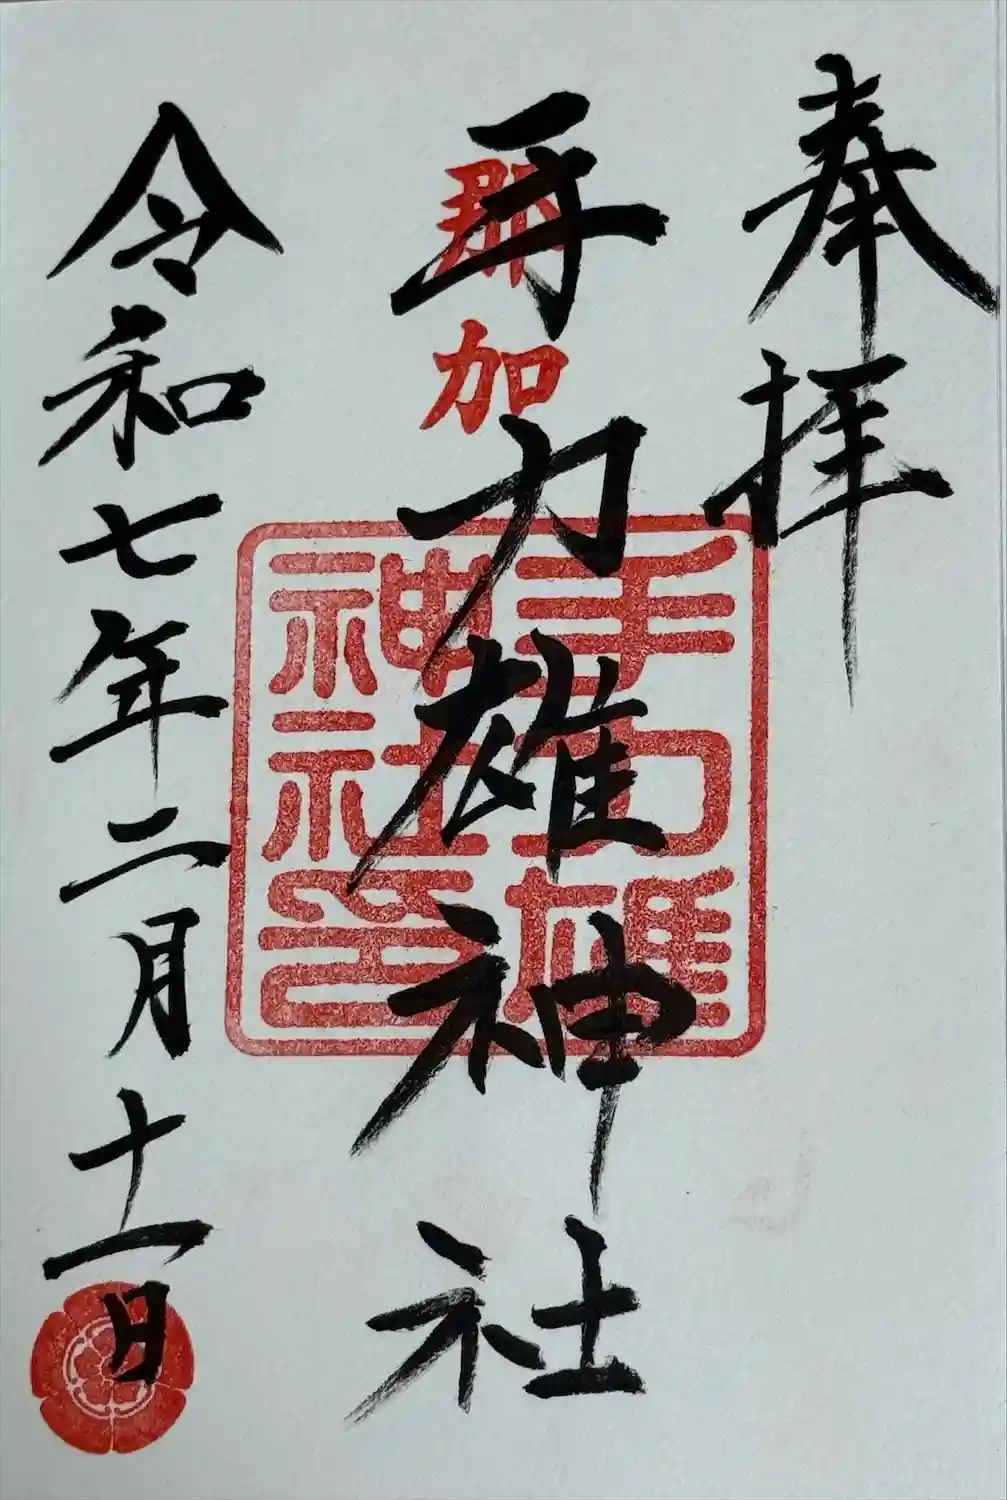 奉拝
那加
手力雄神社
手力雄
神社印
令和七年二月十一日